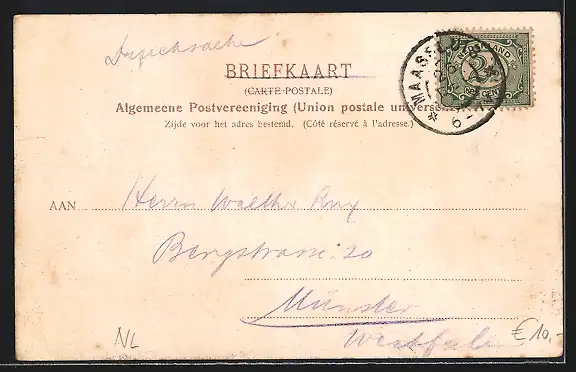 Drucksache
BRIEFKAART
(CARTE POSTALE)
Algemeene Postvereeniging (Union postale universelle)
Zijde voor het adres bestemd. (Côté réservé à l'adresse.)
AAN
Herrn Walther
Bergstrasse 20
Münster
Westfalen
NL
€ 10,-